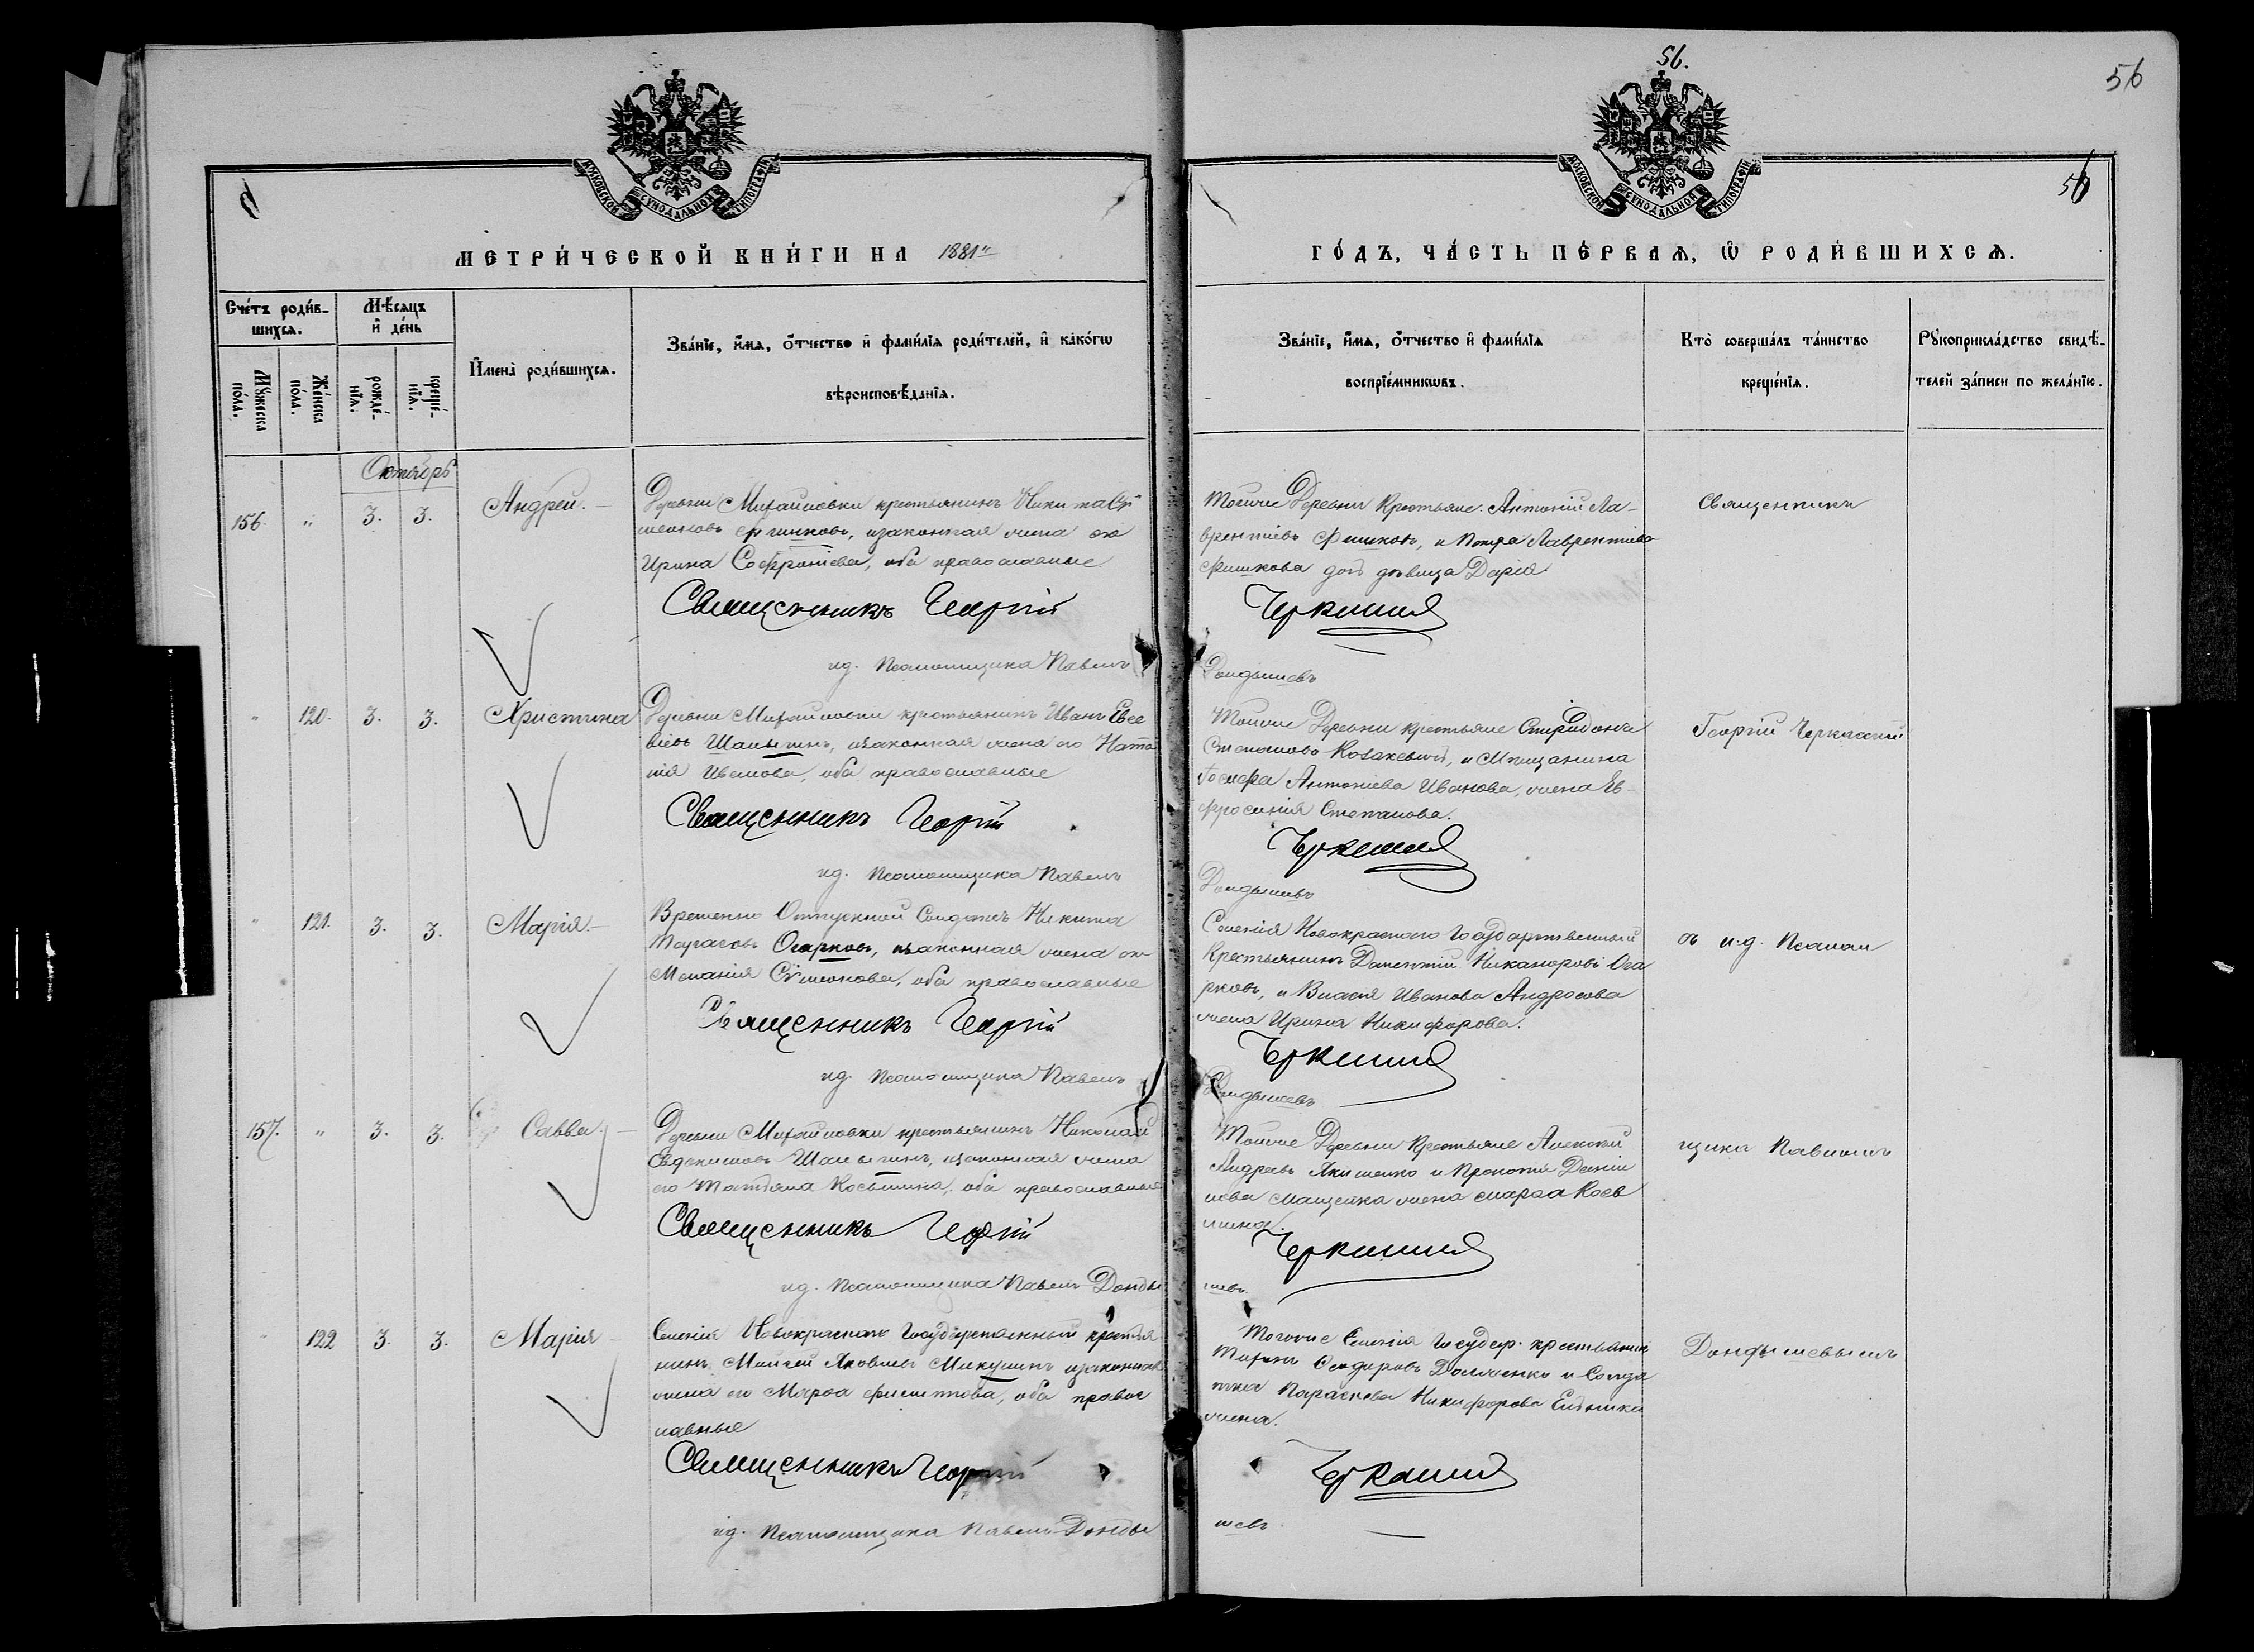 56.
56
56
МОСКОВСКОЙ СѴНОДАЛЬНОЙ ТИПОГРАФІИ
МОСКОВСКОЙ СѴНОДАЛЬНОЙ ТИПОГРАФІИ
МЕТРИ́ЧЕСКОЙ КНИ́ГИ НА 1881й
ГО́ДЪ, ЧА́СТЬ ПЕ́РВАѦ, Ѡ РОДИ́ВШИХСѦ.
Сче́тъ роди́в-
шихсѧ.
Мꙋ́жеска по́ла.
Же́нска по́ла.
Мѣ́сѧцъ
и҆ де́нь
рожде́-
нїѧ.
креще́-
нїѧ.
И҆мена̀ роди́вшихсѧ.
Зва́нїе, и҆́мѧ, ѻ҆́тчество и҆ фами́лїѧ роди́телей, и҆ како́гѡ
вѣроисповѣ́данїѧ.
Зва́нїе, и҆́мѧ, ѻ҆́тчество и҆ фами́лїѧ
воспрїе́мникѡвъ.
Кто̀ соверша́лъ та́инство
креще́нїѧ.
Рꙋкоприкла́дство свидѣ́-
телей за́писи по жела́нїю.
Октябрь
156. " 3. 3. Андрей. —
Деревни Михайловки крестьянинъ Никита Сѵ
меоновъ Фишковъ, изаконная жена его
Ирина Софроніева, оба православные
Священникъ Георгій
ид. Псаломщика Павелъ
Тойже Деревни Крестьяне Антоній Ла-
врентіевъ Фишковъ, и Петра Лаврентіева
Фишкова дочь дѣвица Дарія
Черкаскій
Дондышевъ
Священникъ
" 120. 3. 3. Христина
Деревни Михайловки крестьянинъ Иванъ Евсе
віевъ Шалыгинъ, изаконная жена его Ната
лія Иванова, оба православные
Священникъ Георгій
ид. Псаломщика Павелъ
Тойже Деревни крестьяне Спиридонъ
Степановъ Козакевичъ, и Мѣщанина
Іосифа Антоніева Иванова, жена Ев-
фросинія Степанова.
Черкаскій
Дондышевъ
Георгій Черкаскій
" 121. 3. 3. Марія. —
Временно Отпускной Солдатъ Никита
Тарасовъ Огарковъ, изаконная жена его
Меланія Сѵмеонова, оба православные
Священникъ Георгій
ид. Псаломщика Павелъ
Селенія Новокраснаго Государственный
Крестьянинъ Дометій Никаноровъ Ога
рковъ, и Власія Иванова Андросова
жена Ирина Никифорова.
Черкаскій
Дондышевъ
съ и.д. Псалом
157. " 3. 3. Савва. —
Деревни Михайловки крестьянинъ Николай
Евдокимовъ Шалыгинъ, изаконная жена
его Татіана Косьмина, оба православные
Священникъ Георгій
ид. Псаломщика Павелъ Донды
Тойже Деревни Крестьяне Алексій
Андреевъ Якименко и Прокопія Даніи
лова жена Марѳа Кось
мина.
Черкаскій
шевъ
щика Павломъ
" 122 3. 3. Марія —
Селенія Новокраснаго Государственный крестья
нинъ Моисей Яковлевъ Микулинъ изаконная
жена его Марѳа Филиппова, оба правос
лавные
Священникъ Георгій
ид. Псаломщика Павелъ Донды
Тогоже Селенія Государ. крестьянинъ
Ѳеодоровъ и Солда
тка Параскева Никифорова
Черкаскій
шевъ
Дондышевымъ